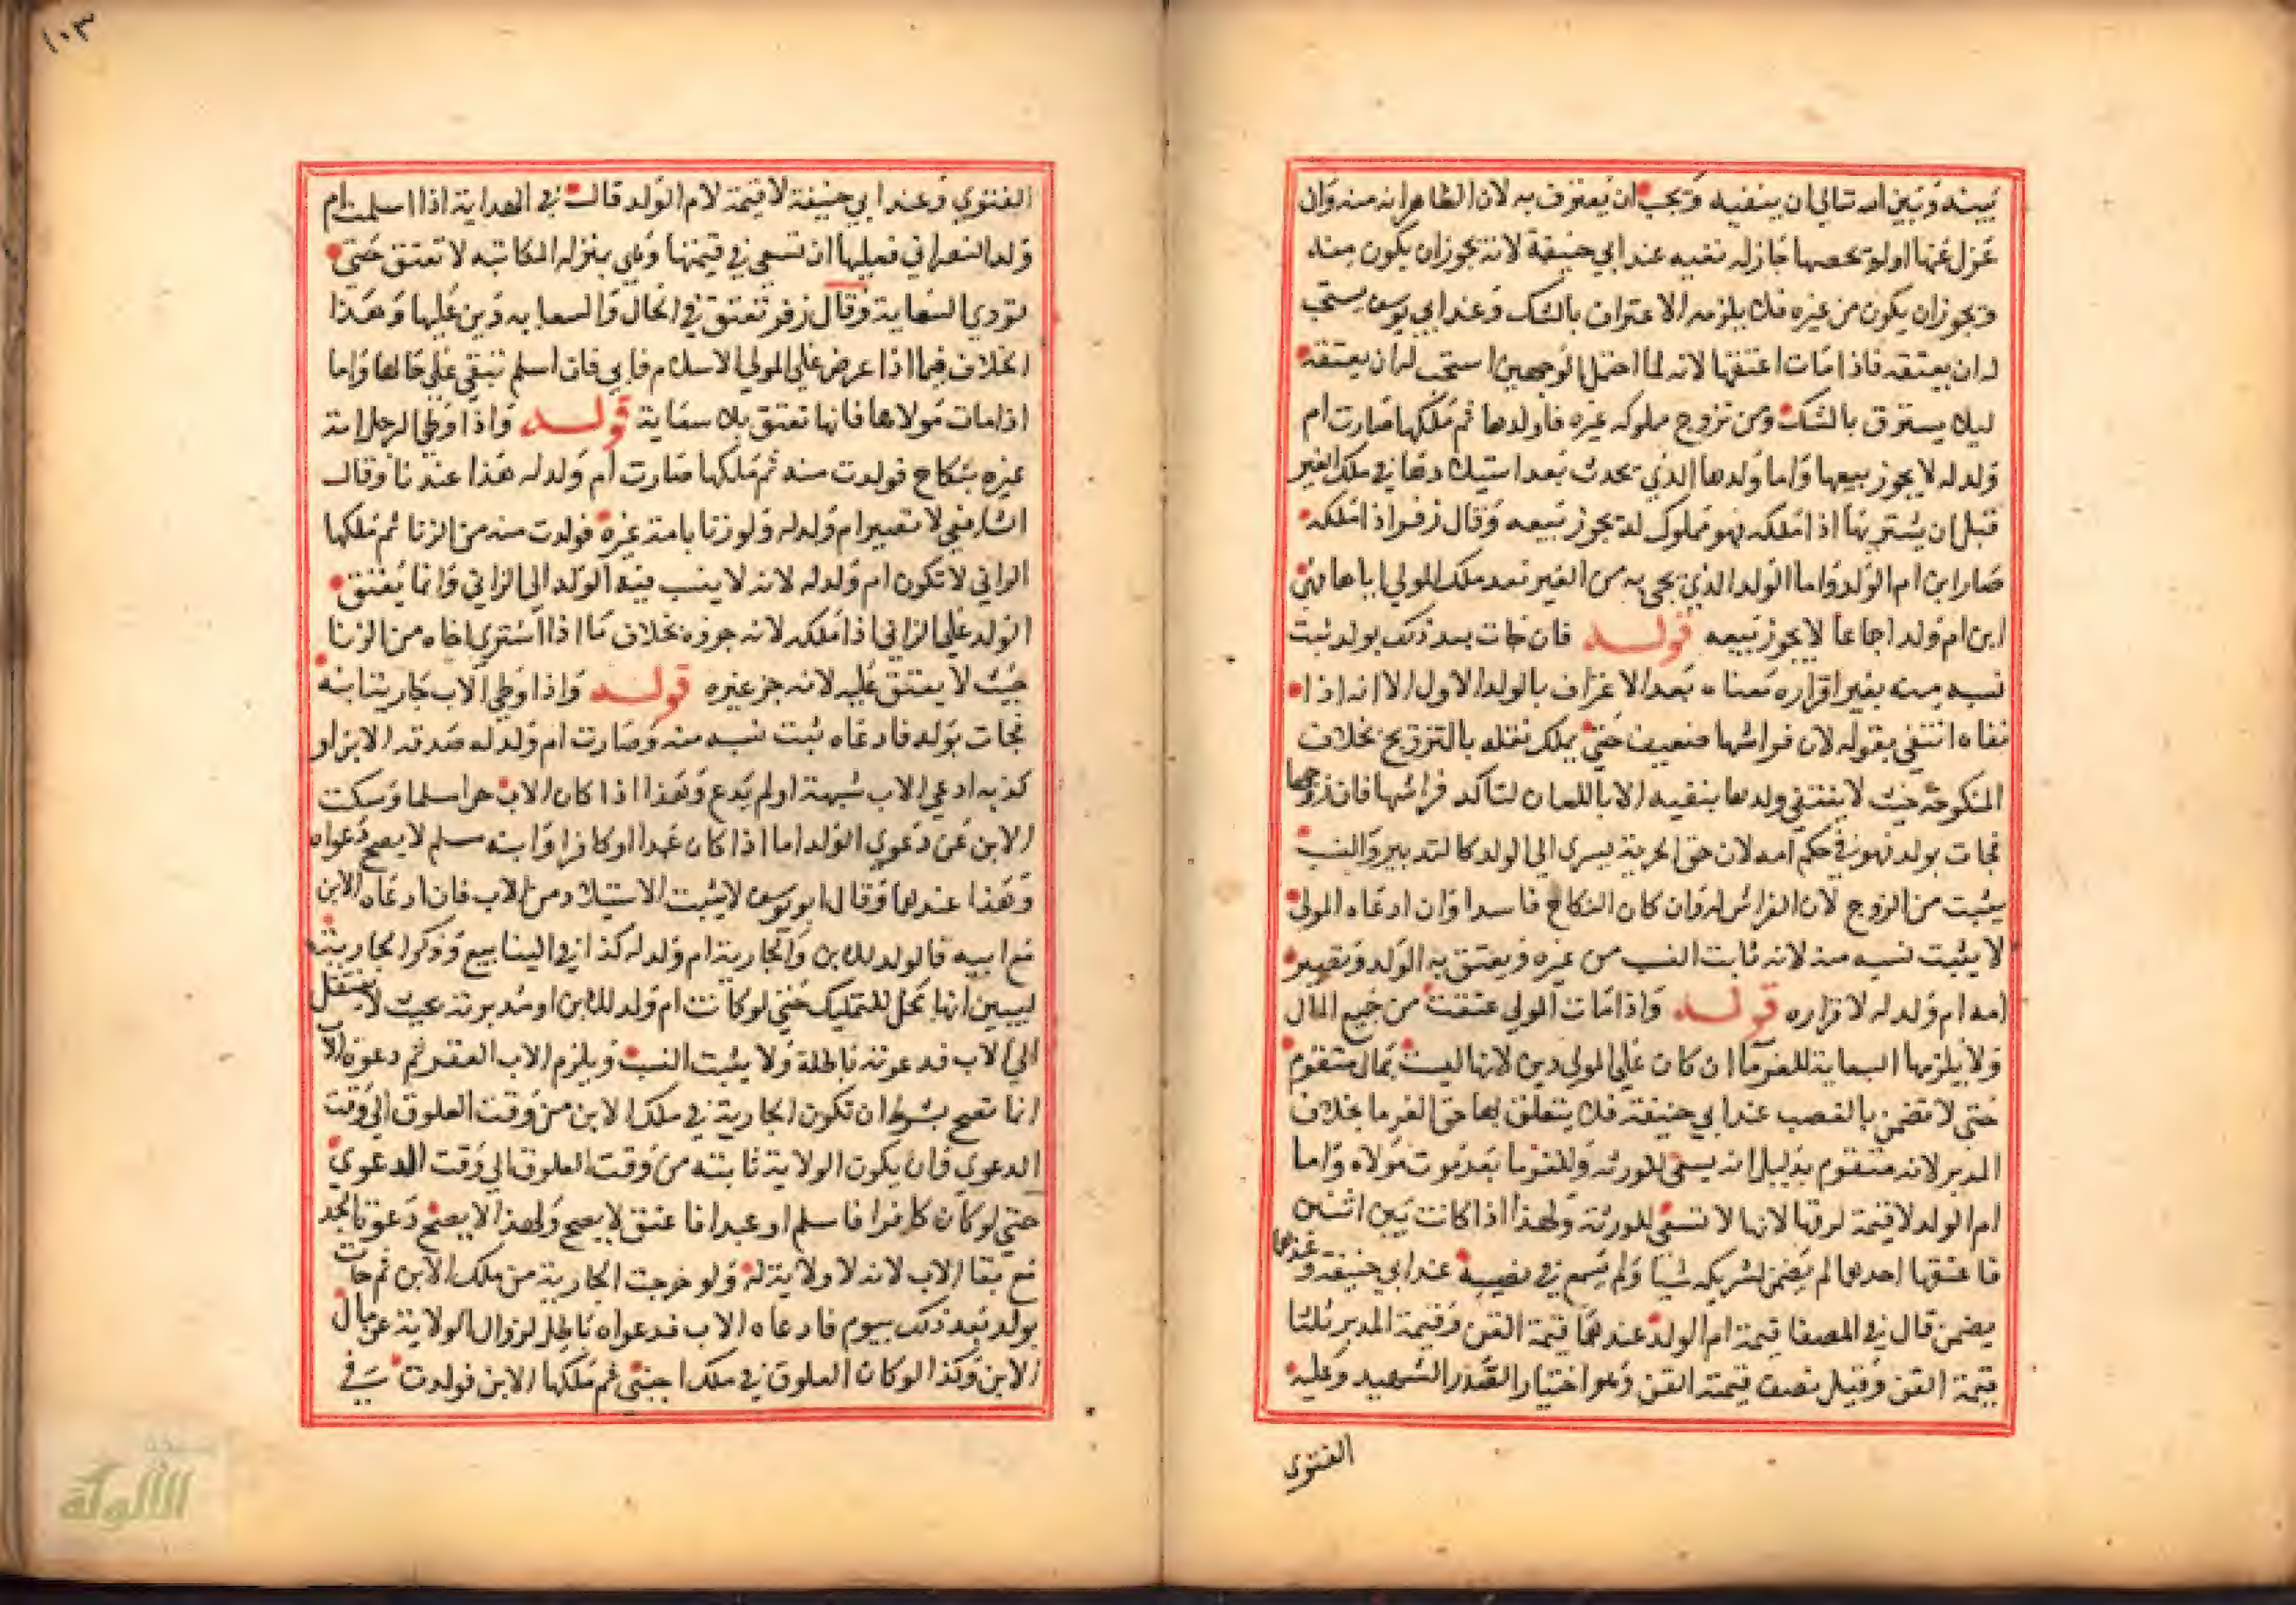 بينه وبين الله تعالى ان ينفيه ويجب ان يعترف به لان الظاهر انه منه وان
عزل عنها اولم يحصنها جاز له نفيه عند ابي حنيفة لانه يجوز ان يكون منه
ويجوز ان يكون من غيره فلا يلزمه الاعتراف بالشك وعند ابي يوسف يستحب
له ان يعتقه فاذا مات اعتقها لانه لما احتمل الوجهين استحب له ان يعتقه
ليلا يسترق بالشك ومن تزوج مملوكه غيره فاولدها ثم ملكها صارت ام
ولد له لا يجوز بيعها واما ولدها الذي يحدث بعد استيلادها في ملك الغير
قبل ان يشتريها اذا ملكه فهو مملوك له يجوز بيعه وقال زفر اذا ملكه
صار ابن ام الولد واما الولد الذي يجي به من الغير بعد ملك المولي اياها فهي
ابن ام ولد اجماعا لا يجوز بيعه قوله فان جات بعد ذلك بولد ثبت
نسبه منه بغير اقراره معناه بعد الاعتراف بالولد الاول الا انه اذا
نفاه انتفي بقوله لان فراشها ضعيف حتي يملك نقله بالتزويج بخلاف
المنكوحة حيث لا ينتفي ولدها بنفيه الا باللعان لتاكد فراشها فان زوجها
فجات بولد فهو في حكم امه لان حق الحرية يسرى الى الولد كالتدبير والنسب
يثبت من الزوج لان الفراش له وان كان النكاح فاسدا وان ادعاه المولي
لا يثبت نسبه منه لانه ثابت النسب من غيره ويعتق به الولد وتصير
امه ام ولد له لاقراره قوله واذا مات المولى عتقت من جميع المال
ولا يلزمها السعاية للغرما ان كان علي المولى دين لانها ليست بمال متقوم
حتي لا تضمن بالغصب عند ابي حنيفة فلا يتعلق بها حق الغرما بخلاف
المدبر لانه متقوم بدليل انه يسعي للورثه وللغرما بعد موت مولاه واما
ام الولد لا قيمة لرقها لانها لا تسعي للورثة ولهذا اذا كانت بين اثنين
فاعتقها احدهما لم يضمن لشريكه شيا ولم تسع في نصيبه عند ابي حنيفه وعندهما
يضمن قال في المصفا قيمة ام الولد عندهما قيمة القن وقيمة المدبر ثلثا
قيمة القن وقيل نصف قيمة القن وهو اختيار الصدر الشهيد وعليه
الفتوى
١٠٣
الفتوي وعند ابي حنيفة لا قيمة لام الولد قال في الهداية اذا اسلمت ام
ولد النصراني فعليها ان تسعي في قيمتها وهي بمنزله المكاتبه لا تعتق حتي
تودي السعاية وقال زفر تعتق في الحال والسعايه دين عليها وهذا
الخلاف فيما اذا عرض علي المولي الاسلام فابي فان اسلم تبقي علي حالها واما
اذا مات مولاها فانها تعتق بلا سعاية قوله واذا وطي الرجل امة
غيره بنكاح فولدت منه ثم ملكها صارت ام ولد له هذا عندنا وقال
الشافعي لا تصير ام ولد له ولو زنا بامة غيره فولدت منه من الزنا ثم ملكها
الزاني لا تكون ام ولد له لانه لا ينسب فيه الولد الي الزاني وانما يعتق
الولد علي الزاني اذا ملكه لانه جزوه بخلاف ما اذا اشتري اخاه من الزنا
حيث لا يعتق عليه لانه جز غيره قوله واذا وطي الاب جارية ابنه
فجات بولد فادعاه ثبت نسبه منه وصارت ام ولد له صدقه الابن او
كذبه ادعي الاب شبهة او لم يدع وهذا اذا كان الاب حرا مسلما وسكت
الابن عن دعوي الولد اما اذا كان عبدا او كافرا وابنه مسلم لا يصح دعواه
وهذا عندهما وقال ابو يوسف لا يثبت الاستيلاد من الاب فان ادعاه الابن
مع ابيه فالولد للابن والجارية ام ولد له كذا في الينابيع وذكر الجارية
ليبين انها تحل للتمليك حتي لو كانت ام ولد للابن او مدبرته بحيث لا تنتقل
الي الاب فدعوته باطلة ولا يثبت النسب ويلزم الاب العقر ثم دعوة الاب
انما تصح بشرط ان تكون الجارية في ملك الابن من وقت العلوق الي وقت
الدعوي وان يكون الولاية ثابته من وقت العلوق الي وقت الدعوي
حتي لو كان كافرا فاسلم او عبدا فاعتق لا يصح ولهذا لا يصح دعوة الجد
مع بقا الاب لانه لا ولاية له ولو خرجت الجارية من ملك الابن ثم جات
بولد بعد ذلك بيوم فادعاه الاب فدعواه باطل لزوال الولاية عن مال
الابن وكذا لو كان العلوق في ملك اجنبي ثم ملكها الابن فولدت في
الألوكة